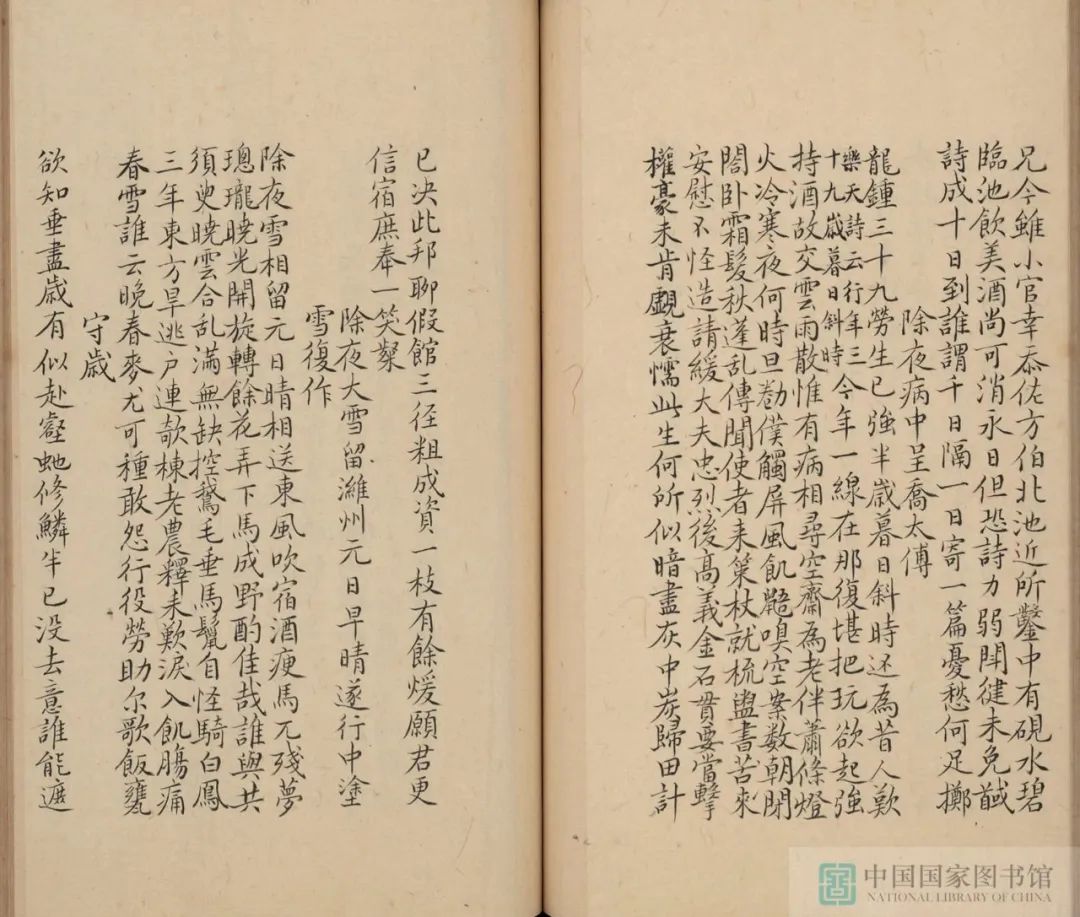 兄今雖小官幸忝佐方伯北池近所鑿中有硯水碧
臨池飲美酒尚可消永日但恐詩力弱鬪健未免馘
詩成十日到誰謂千日隔一日寄一篇憂愁何足擲
除夜病中呈喬太傅
龍鍾三十九勞生已強半歲暮日斜時还為昔人歎
樂天詩云行年三
十九歲暮日斜時
今年一線在那復堪把玩欲起強
持酒故交雲雨散惟有病相尋空齋為老伴蕭條燈
火冷寒夜何時旦勸僕觸屏風飢鼯嗅空案数朝閉
閤卧霜髮秋蓬乱傳聞使者来策杖就梳盥書苦來
安慰不怪造請緩大夫忠烈後高義金石貫要當擊
權豪未肯覷衰懦此生何所似暗盡灰中炭歸田計
已决此邦聊假館三径粗成資一枝有餘煖願君更
信宿庶奉一笑粲
除夜大雪留濰州元日早晴遂行中塗
雪復作
除夜雪相留元日晴相送東風吹宿酒瘦馬兀殘夢
璁瓏曉光開旋轉餘花弄下馬成野酌佳哉誰與共
須臾曉雲合乱滿無缺控鵞毛垂馬鬣自怪騎白鳳
三年東方旱逃户連欹棟老農釋耒歎淚入飢膓痛
春雪誰云晚春麥尤可種敢怨行役勞助尔歌飯甕
守歲
欲知垂盡歲有似赴壑虵修鱗半已没去意誰能遮
中国国家图书馆
NATIONAL LIBRARY OF CHINA